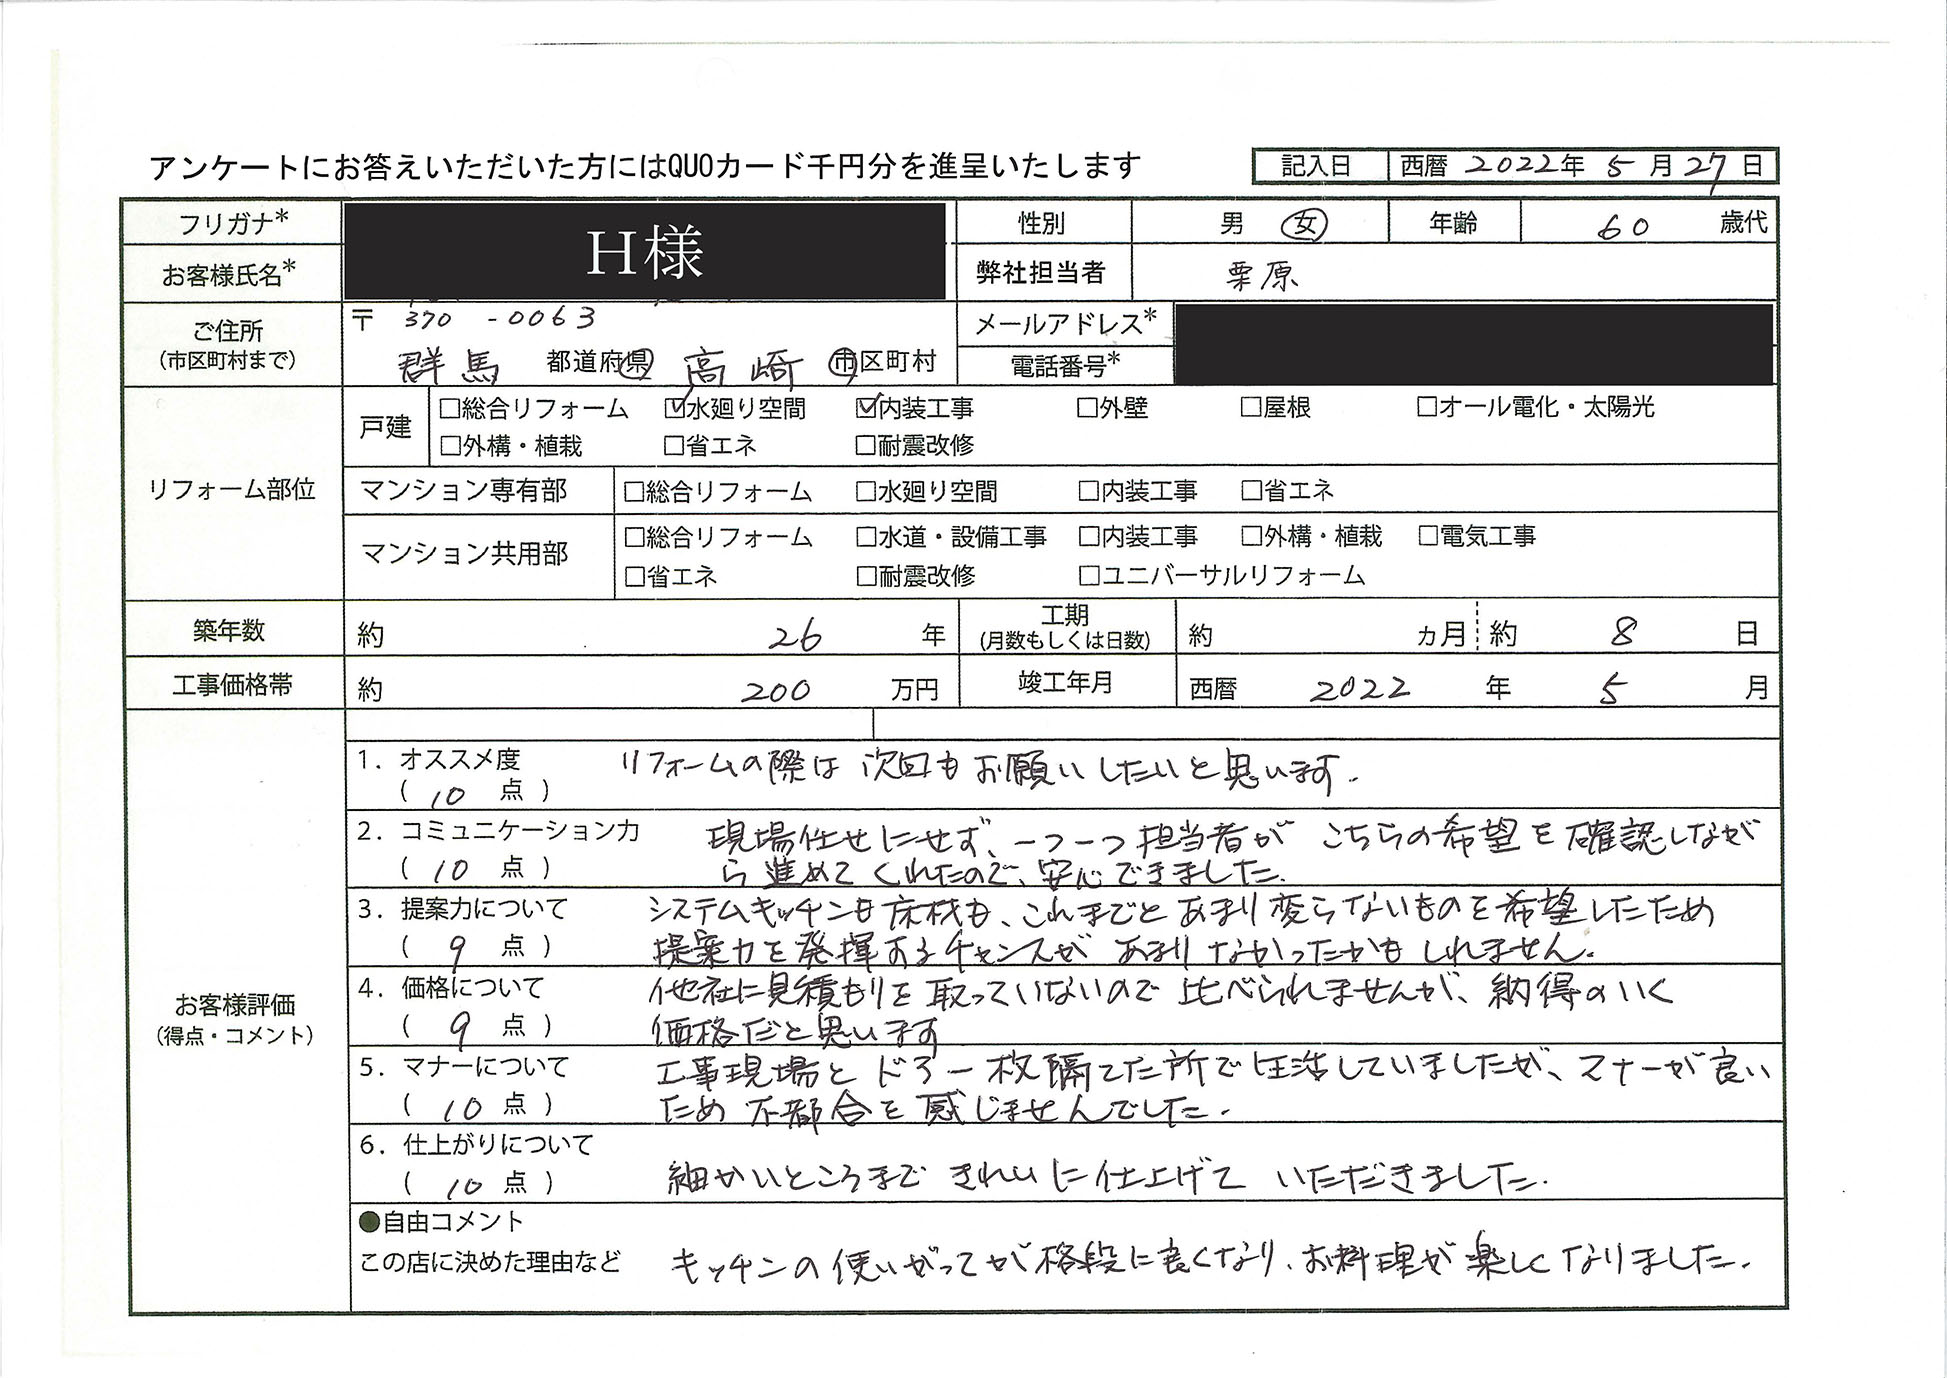 アンケートにお答えいただいた方にはQUOカード千円分を進呈いたします
記入日 西暦 2022年 5月 27日
フリガナ* H様 性別 男 女 年齢 60 歳代
お客様氏名* 弊社担当者 栗原
ご住所 (市区町村まで) 〒370-0063 メールアドレス*
群馬 都道府県 高崎 市区町村 電話番号*
リフォーム部位
戸建 □総合リフォーム ☑水廻り空間 ☑内装工事 □外壁 □屋根 □オール電化・太陽光
□外構・植栽 □省エネ □耐震改修
マンション専有部 □総合リフォーム □水廻り空間 □内装工事 □省エネ
マンション共用部 □総合リフォーム □水道・設備工事 □内装工事 □外構・植栽 □電気工事
□省エネ □耐震改修 □ユニバーサルリフォーム
築年数 約 26 年 工期 (月数もしくは日数) 約 ヵ月 約 8 日
工事価格帯 約 200 万円 竣工年月 西暦 2022 年 5 月
お客様評価
(得点・コメント)
1. オススメ度 リフォームの際は次回もお願いしたいと思います.
( 10 点 )
2. コミュニケーション力 現場任せにせず、一つ一つ担当者がこちらの希望を確認しなが
( 10 点 ) ら進めてくれたので、安心できました.
3. 提案力について システムキッチンも床材も、これまでとあまり変らないものを希望したため
( 9 点 ) 提案力を発揮するチャンスがあまりなかったかもしれません.
4. 価格について 他社に見積もりを取っていないので比べられませんが、納得のいく
( 9 点 ) 価格だと思います
5. マナーについて 工事現場とドアー枚隔てた所で生活していましたが、マナーが良い
( 10 点 ) ため不都合を感じませんでした.
6. 仕上がりについて
( 10 点 ) 細かいところまできれいに仕上げていただきました.
●自由コメント
この店に決めた理由など キッチンの使いがってが格段に良くなり、お料理が楽しくなりました.